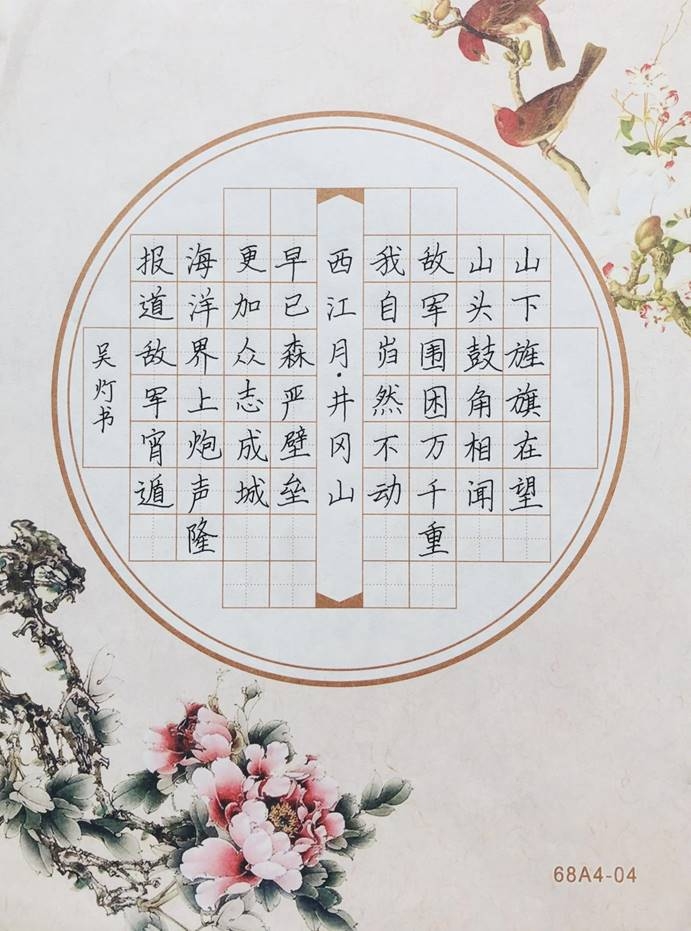 山下旌旗在望
山头鼓角相闻
敌军围困万千重
我自岿然不动
西江月·井冈山
早已森严壁垒
更加众志成城
海洋界上炮声隆
报道敌军宵遁
吴灯书
68A4-04